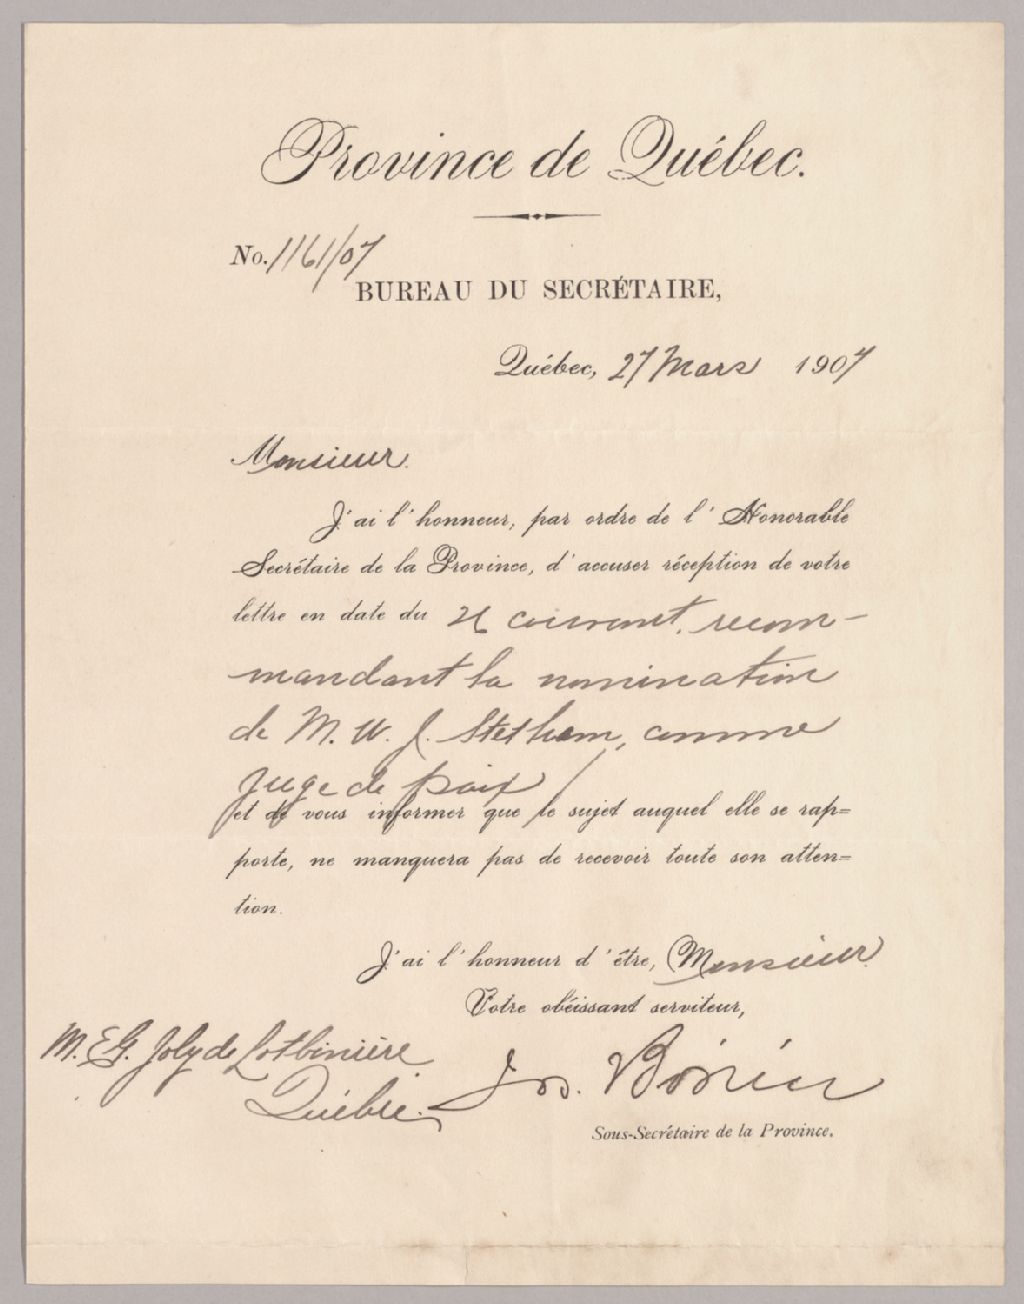 Province de Québec.
No. 1161/07
BUREAU DU SECRÉTAIRE,
Québec, 27 Mars 1907
Monsieur
J'ai l'honneur, par ordre de l'Honorable
Secrétaire de la Province, d'accuser réception de votre
lettre en date du courant, recom-
mandant la nomination
de M. W. J. Stetham, comme
Juge de paix
et de vous informer que le sujet auquel elle se rap=
porte, ne manquera pas de recevoir toute son atten=
tion.
J'ai l'honneur d'être, Monsieur
Votre obéissant serviteur,
M. E.G. Joly de Lotbinière
Québec.
Jos.
Sous-Secrétaire de la Province.